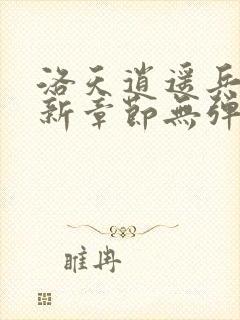 洛天逍遥兵
新章節無彈
睢冉